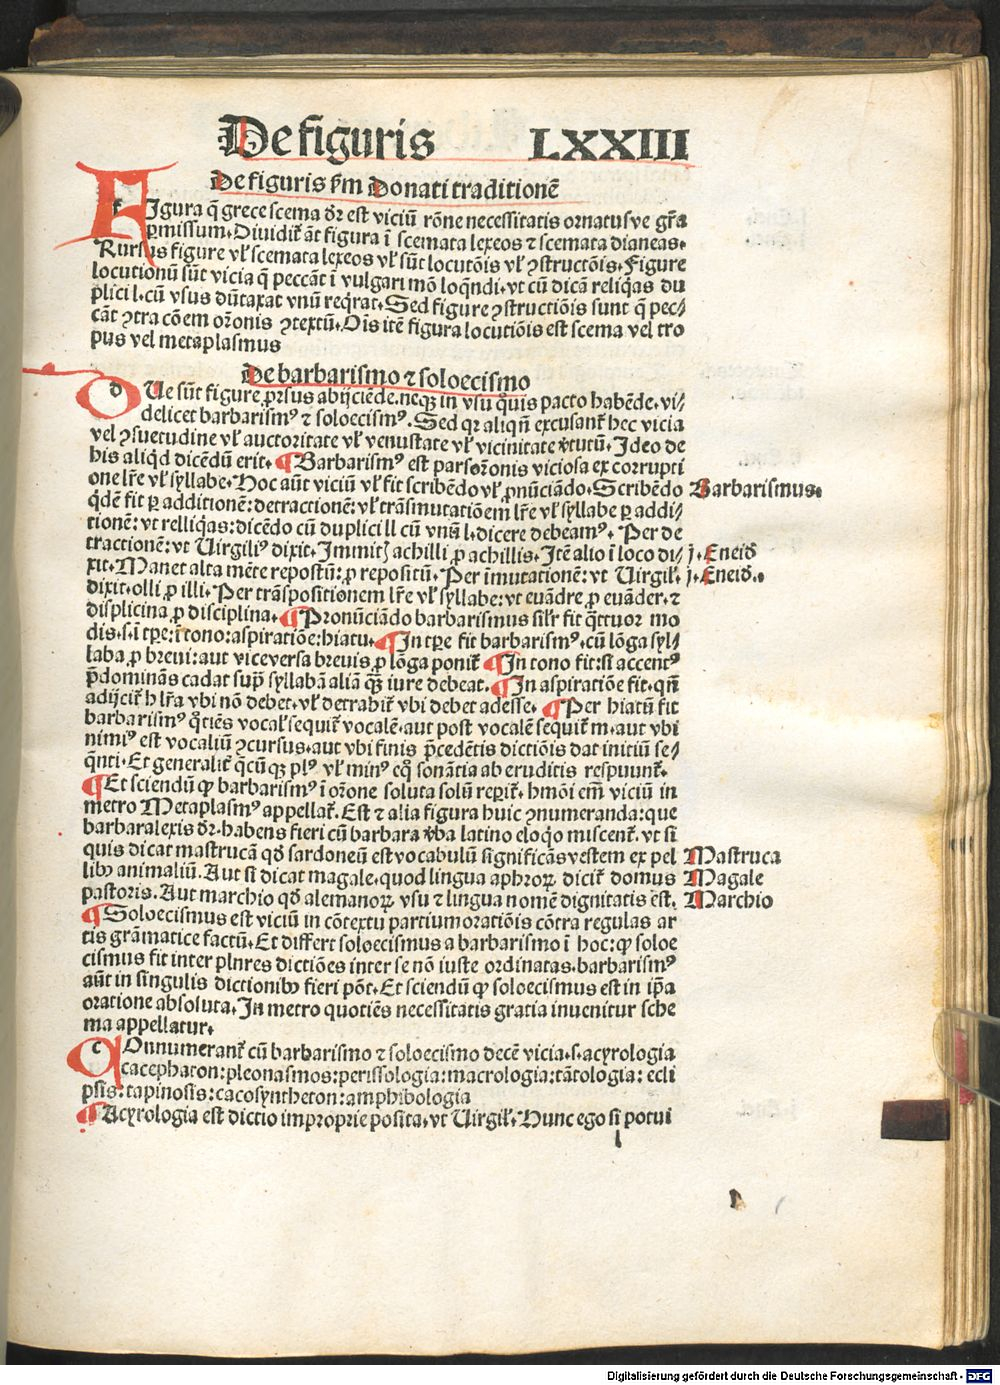 De figuris LXXIII
De figuris ẜm Donati traditionē
FIgura q̄ grece scema dr̄ est viciū rōne necessitatis ornatusve gr̄a
ꝑmissum. Diuidit̄ āt figura ī scemata lexeos ⁊ scemata dianeas.
Rursus figure vl̓ scemata lexeos vl̓ sūt locutōis vl̓ ꝯstructōis. Figure
locutionū sūt vicia q̄ peccāt ī vulgari mō loq̄ndi. vt cū dicā reliq̄as du
plici l. cū vsus dūtaxat vnū req̄rat. Sed figure ꝯstructiōis sunt q̄ pec/
cāt ꝯtra cōem orōnis ꝯtextū. Oīs itē figura locutiōis est scema vel tro
pus vel metaplasmus
De barbarismo ⁊ soloecismo
dUe sūt figure ꝓrsus abijciēde. neqꝫ in vsu q̊uis pacto habēde. vi/
delicet barbarismꝰ ⁊ soloecismꝰ. Sed qꝛ aliqn̄ excusant̄ hec vicia
vel ꝯsuetudine vl̓ auctoritate vl̓ venustate vl̓ vicinitate v̓tutū. Ideo de
his aliqd dicēdū erit. ¶ Barbarismꝰ est pars orōnis viciosa ex corrupti
one lr̄e vl̓ syllabe. Hoc aūt viciū vl̓ fit scribēdo vl̓ ꝓnūciādo. Scribēdo
Barbarismus.
q̇dē fit ꝑ additionē: detractionē: vl̓ trāsmutatiōem lr̄e vl̓ syllabe ꝑ addi/
tionē: vt relliq̄as: dicēdo cū duplici ll cū vnū l. dicere debeamꝰ. Per de
tractionē: vt Virgiliꝰ dixit. Immitꝫ achilli ꝓ achillis. Itē alio ī loco di/
j. Eneid̄
xit. Manet alta mēte repostū: ꝓ repositū. Per īmutationē: vt Virgil̓.
j. Eneid̄.
dixit. olli ꝓ illi. Per trāspositionem lr̄e vl̓ syllabe: vt euādre ꝓ euāder. ⁊
displicina ꝓ disciplina. ¶ Pronūciādo barbarismus sil̓r fit q̄ttuor mo
dis. s. ī tꝑe: ī tono: aspiratiōe: hiatu. ¶ In tꝑe fit barbarismꝰ. cū lōga syl/
laba ꝓ breui: aut viceversa breuis ꝓ lōga ponit̄ ¶ In tono fit: si accentꝰ
p̄dominās cadat sup̄ syllabā aliā qꝫ̄ iure debeat. ¶ In aspiratiōe fit. qn̄
adijcit̄ h lr̄a vbi nō debet. vl̓ detrahit̄ vbi debet adesse. ¶ Per hiatū fit
barbarismꝰ q̇tiēs vocal̓ sequit̄ vocalē. aut post vocalē sequit̄ m. aut vbi
nimiꝰ est vocaliū ꝯcursus. aut vbi finis p̄cedētis dictiōis dat initiū se/
q̄nti. Et generalit̄ q̄cūqꝫ plꝰ vl̓ minꝰ eq̊ sonātia ab eruditis respuunt̄.
¶ Et sciendū ꝙ barbarismꝰ ī orōne soluta solū reꝑit̄. hmōi em̄ viciū in
metro Metaplasmꝰ appellat̄. Est ⁊ alia figura huic ꝯnumeranda: que
barbaralexis dr̄. habens fieri cū barbara v̓ba latino eloq̊o miscent̄. vt si
quis dicat mastrucā qd̄ sardoneū est vocabulū significās vestem ex pel
Mastruca
libꝰ animaliū. Aut si dicat magale. quod lingua aphroꝝ dicit̄ domus
Magale
pastoris. Aut marchio qd̄ alemanoꝝ vsu ⁊ lingua nomē dignitatis est.
Marchio
¶ Soloecismus est viciū in cōtextu partium oratiōis cōtra regulas ar
tis grāmatice factū. Et differt soloecismus a barbarismo ī hoc: ꝙ soloe
cismus fit inter plures dictiōes inter se nō iuste ordinatas. barbarismꝰ
aūt in singulis dictionibꝰ fieri pōt. Et sciendū ꝙ soloecismus est in ip̄a
oratione absoluta. In metro quotiēs necessitatis gratia inuenitur sche
ma appellatur.
cOnnumerant̄ cū barbarismo ⁊ soloecismo decē vicia. s. acyrologia
cacephaton: pleonasmos: perissologia: macrologia: tātologia: ecli
psis: tapinosis: cacosyntheton: amphibologia
¶ Acyrologia est dictio improprie posita. vt Virgil̓. Hunc ego si potui
l
Digitalisierung gefördert durch die Deutsche Forschungsgemeinschaft - DFG